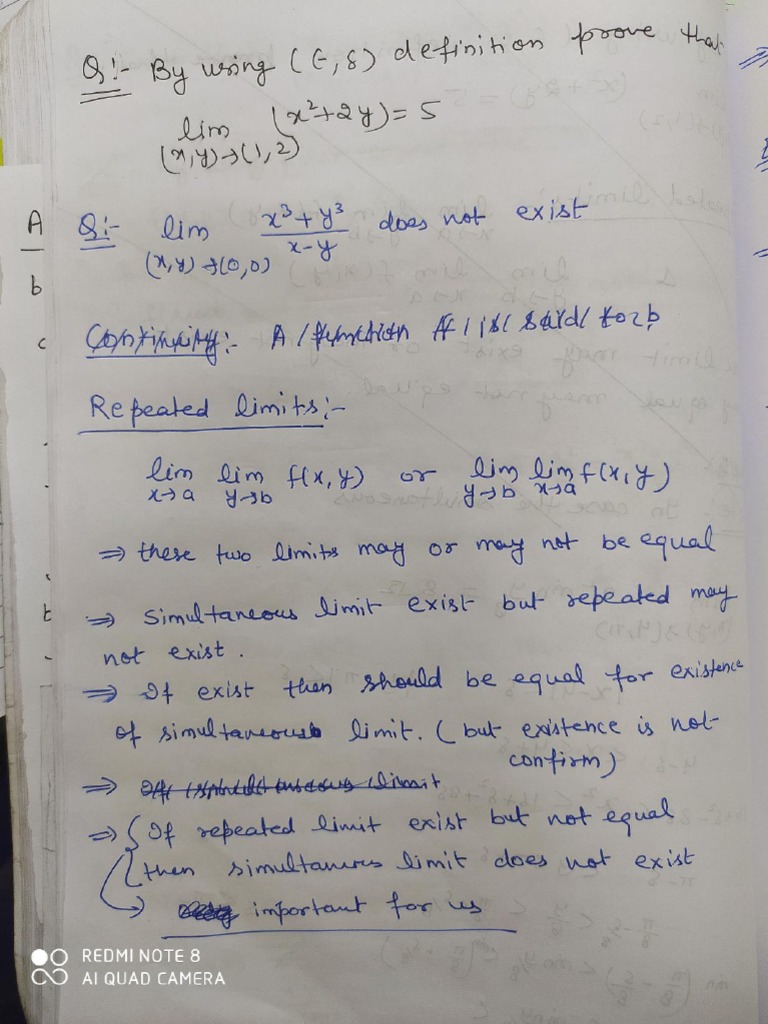 Q:- By using (ϵ, δ) definition prove that
lim (x²+2y) = 5
(x,y)→(1,2)
A
Q:- lim x³+y³/x-y does not exist
(x,y)→(0,0)
b
c
Continuity:- A function f is said to b
Repeated limits:-
lim lim f(x,y) or lim lim f(x,y)
x→a y→b y→b x→a
⇒ these two limits may or may not be equal
⇒ Simultaneous limit exist but repeated may
not exist.
⇒ If exist then should be equal for existence
of simultaneous limit. (but existence is not
confirm)
⇒
⇒ { If repeated limit exist but not equal
then simultaneous limit does not exist
→ important for us
REDMI NOTE 8
AI QUAD CAMERA